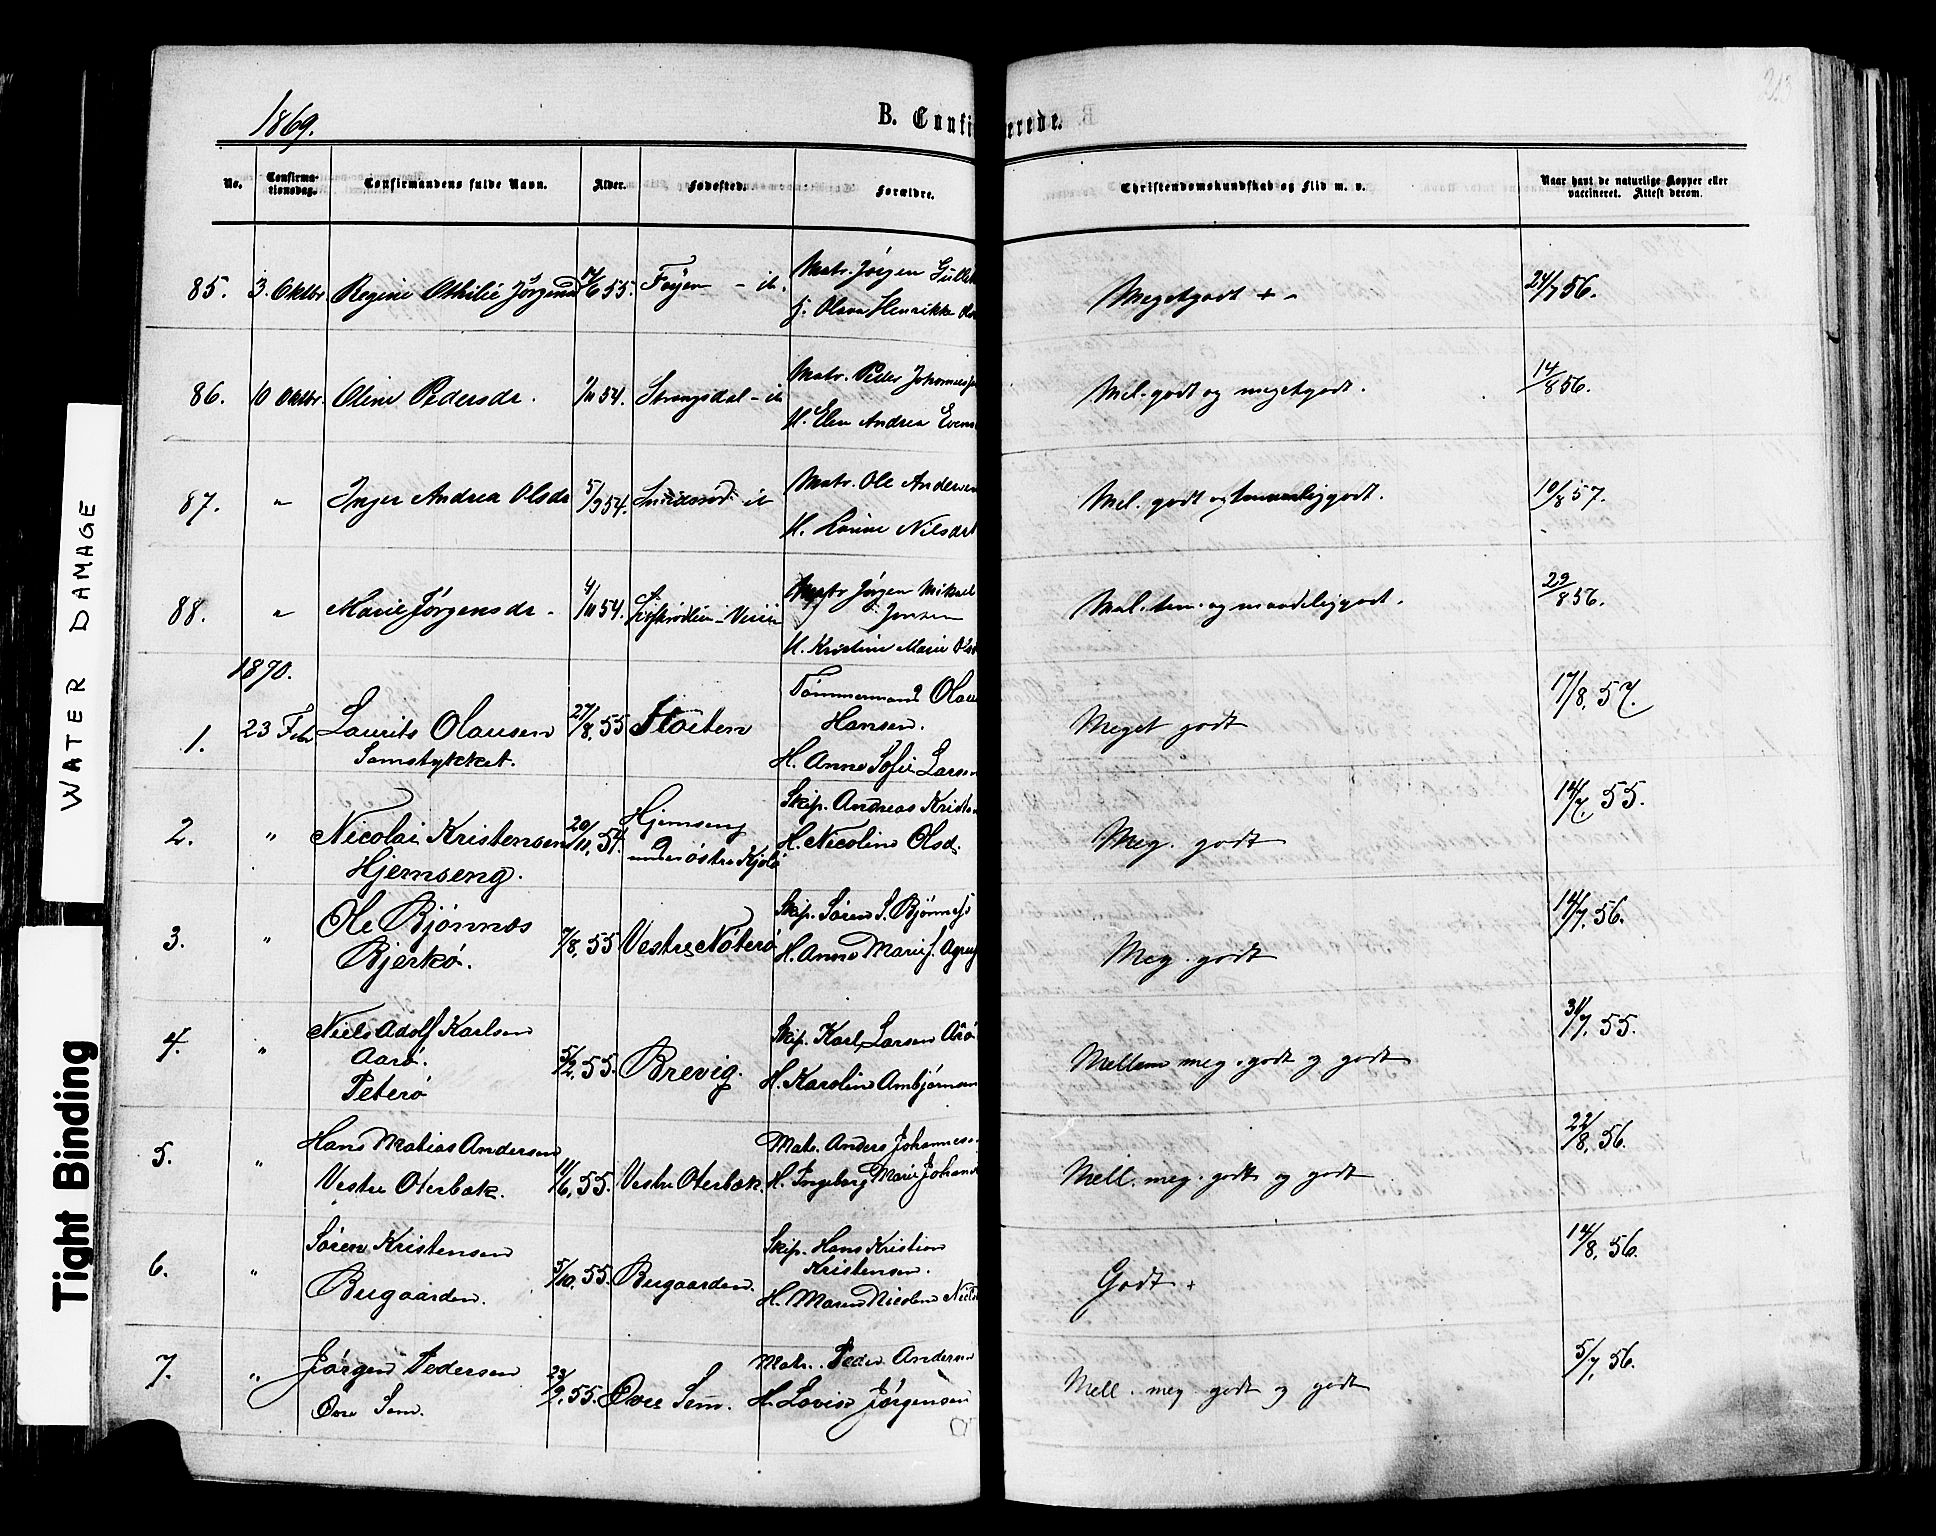 213
1869.
B. Confi rerede.
No.
Confirma-
tionsdag.
Confirmandens fulde Navn.
Alder.
Fødested.
Forældre.
Christendomskundskab og Flid m. v.
Naar havt de naturlige Kopper eller
vaccineret. Attest derom.
85. 3. Oktbr. Regine Othilie Jørgensd 17/6 55. Føyen - ib. Matr. Jørgen Gullik
H. Olava Henrikke Ols
Megetgodt + - 24/7 56.
86. 10 Oktbr. Oline Pedersdr. 1/10 54. Strengsdal - ib Matr. Peder Johannes
H. Elen Andrea Evens
Mel. godt og megetgodt. 14/8 56.
87. " Inger Andrea Olsdr 5/9 54. ib Matr. Ole Andersen
H. Lovise Nilsdat
Mel. godt og temmeligodt. 10/8 57.
88. " Marie Jørgensdr - 4/10 54. Matr Jørgen Mikael
Jensen
H. Kristine Marie Olsd
Mel. tem. og maadeligodt. 29/8 56.
1870.
1. 23 Febr Laurits Olausen 27/8, 55 Stoiten Tømmermand Olaus
Hansen.
Sømstykket. H. Anne Sofie Larsen
Meget godt 17/8, 57.
2. " Nicolai Kristensen 20/11, 54. Hjemseng Skip. Andreas Kristen
under østre Kjøle H. Nicoline Olsd.
Hjemseng.
Meg. godt 14/7, 55.
3. " Ole Bjönnæs 7/8, 55 Vestre Nøterø Skip. Søren S. Bjönnes
Bjerkø. H. Anne Marie
Meg. godt 14/7, 56.
4. " Niels Adolf Karlsen 5/2, 55. Brevig. Skip. Karl Larsen Arø
Aarø. H. Karoline Ambjørnsen
Peterø
Mellem meg. godt og godt 31/7, 55.
5. " Hans Matias Andersen 11/6, 55. Vestre Oterbæk. Matr. Anders Johannesen
Vestre Oterbæk. H. Ingeborg Marie Johan
Mell. meg. godt og godt 22/8, 56.
6. " Søren Kristensen 5/10, 55. Buegaarden. Skip. Hans Kristian
Kristensen.
Buegaarden. H. Maren Nicoline Niels
Godt + 14/8, 56.
7. " Jørgen Pedersen 23/9, 55. Øvre Sem. Matr. Peder Andersen
Øvre Sem. H. Lovise Jørgensen
Mell. meg. godt og godt 5/7, 56.
WATER DAMAGE
Tight Binding